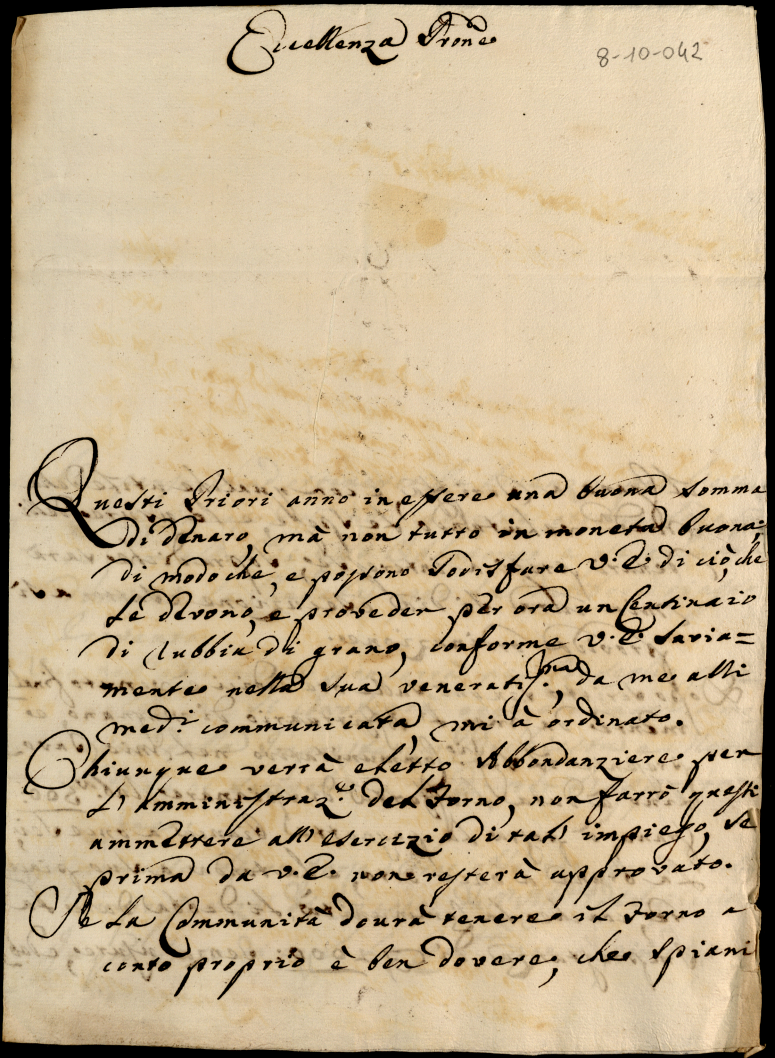 Eccellenza Prone
8-10-042
Questi Priori anno in essere una buona somma
di denaro, mà non tutto in moneta buona;
di modo che, e possono sodisfare V. E. di ciò, che
Le devono, e proveder per ora un Centinaio
di rubbia di grano, conforme V. E. savia=
mente nella sua veneratissma, da me alli
medi: communicata, mi à ordinato.
Chiunque verrà eletto Abbondanziere per
L'amministraze: del Forno, non farrò questi
ammettere all'esercizio di tal' impiego, se
prima da V. E. non resterà approvato.
Se La Communità dourà tenere il Forno a
conto proprio è ben dovere, che spiani